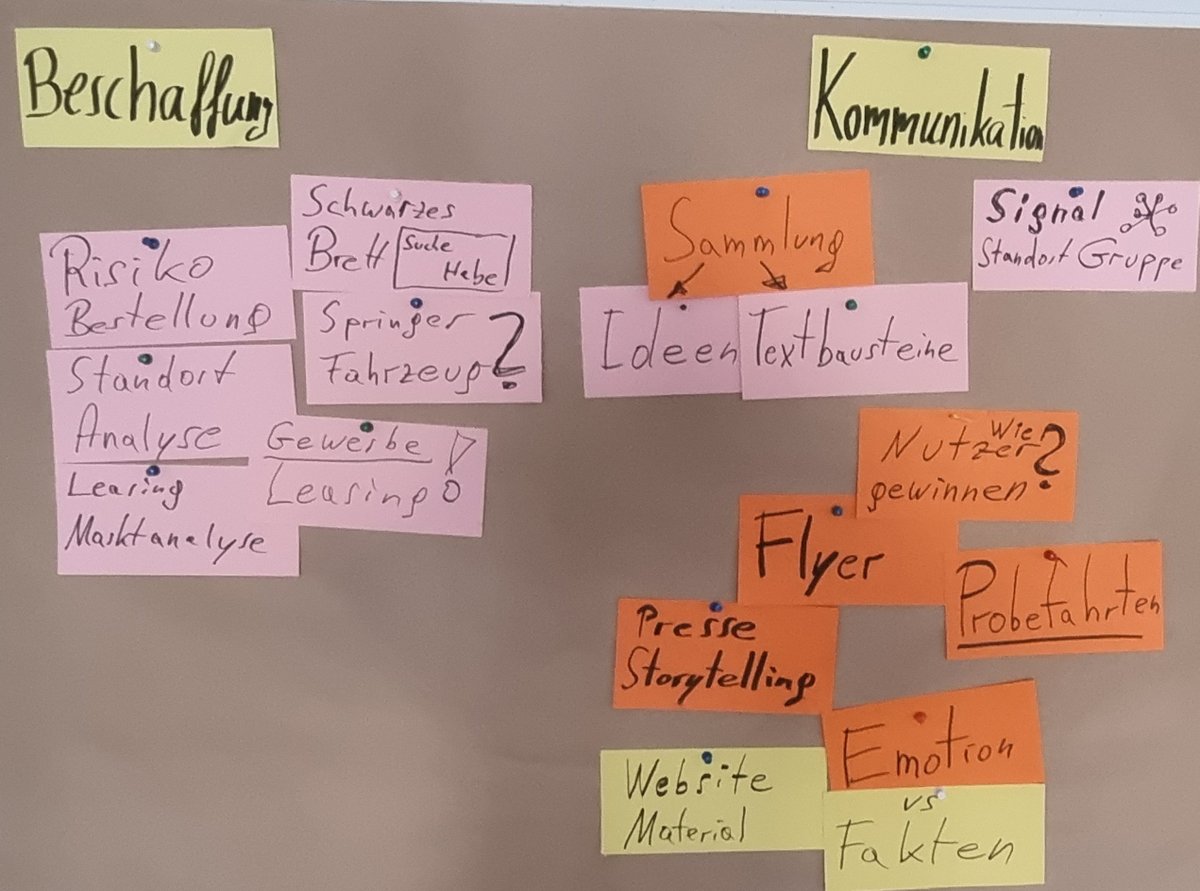 Beschaffung
Risiko
Bestellung
Standort
Analyse
Leasing
Marktanalyse
Schwarzes
Brett
Suche
Habe
Springer
Fahrzeug?
Gewerbe
Leasing!
Kommunikation
Sammlung
Ideen
Textbausteine
Signal
Standort Gruppe
Wie
Nutzer
gewinnen?
Flyer
Probefahrten
Presse
Storytelling
Emotion
vs
Fakten
Website
Material